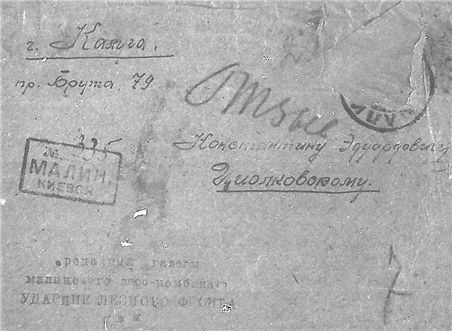 г. Калуга.
пр. Брута, 79
Отзыв
Константину Эдуардовичу
Циолковскому.
№ 335
МАЛИН.
КИЕВСК
газеты
малинского лесо-комбината
УДАРНИК ЛЕСНОГО ФРОНТА
7